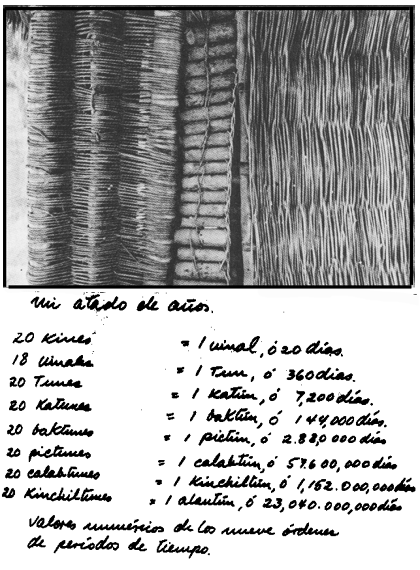 un atado de años.
20 Kines = 1 uinal, ó 20 días.
18 uinales = 1 Tun, ó 360 días.
20 Tunes = 1 Katún, ó 7,200 días.
20 Katunes = 1 baktún, ó 144,000 días.
20 baktunes = 1 pictún, ó 2.880,000 días
20 pictunes = 1 calabtún, ó 57.600,000 días
20 calabtunes = 1 Kinchiltún, ó 1,152.000,000 días
20 Kinchiltunes = 1 alautún, ó 23,040.000,000 días
Valores numéricos de los nueve órdenes
de períodos de tiempo.